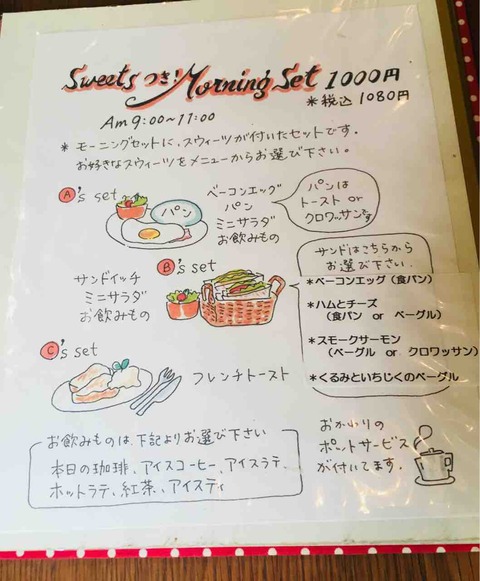 Sweetsつき! Morning Set 1000円
*税込 1080円
Am 9:00~11:00
* モーニングセットに、スウィーツが付いたセットです。
お好きなスウィーツをメニューからお選び下さい。
A's set
パン
ベーコンエッグ
パン
ミニサラダ
お飲みもの
パンは
トースト or
クロワッサンです
B's set
サンドイッチ
ミニサラダ
お飲みもの
サンドはこちらから
お選び下さい。
*ベーコンエッグ(食パン)
*ハムとチーズ
(食パン or ベーグル)
*スモークサーモン
(ベーグル or クロワッサン)
*くるみといちじくのベーグル
C's set
フレンチトースト
お飲みものは、下記よりお選び下さい
本日の珈琲、アイスコーヒー、アイスラテ、
ホットラテ、紅茶、アイスティ
おかわりの
ポットサービス
が付いてます。